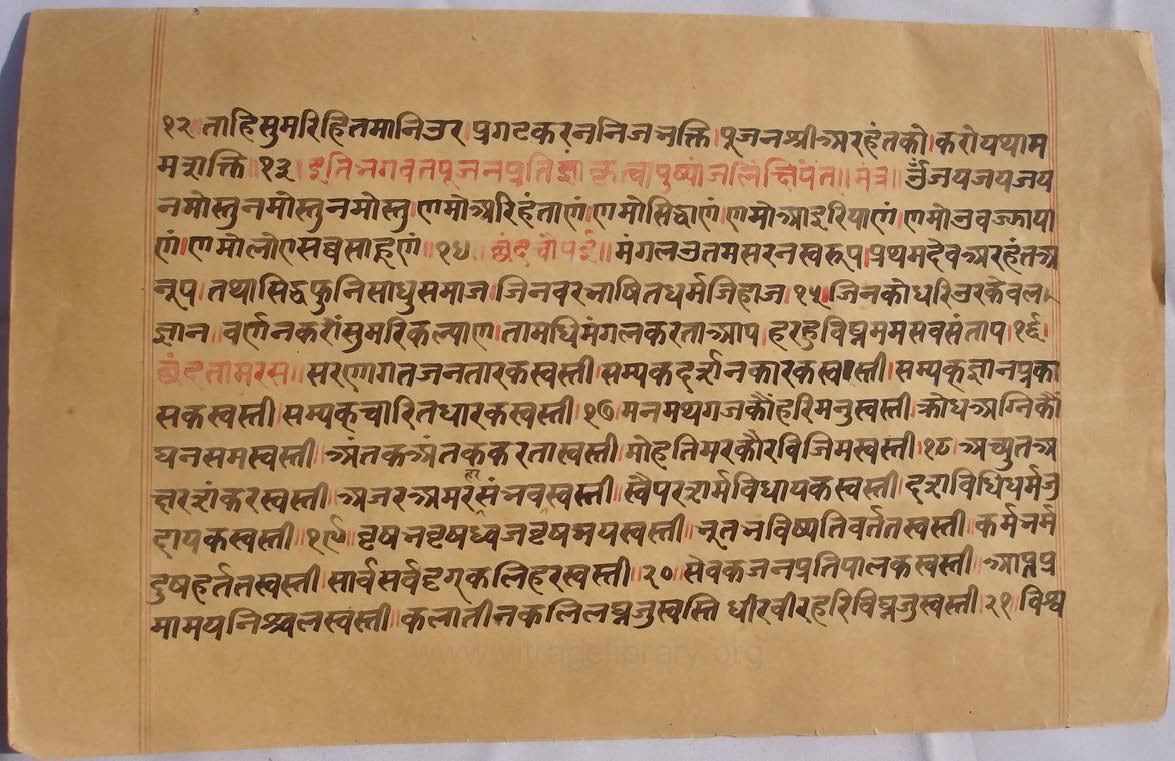 १२॥ताहिसुमरिहितमानिउर।प्रगटकरननिजभक्ति।पूजनश्रीअरहंतकी।करोयथाम
मशक्ति॥१३॥इतिभगवतपूजनप्रतिज्ञांकृत्वापुष्पांजलिंक्षिपेत्॥मंत्र॥ॐजयजयजय
नमोस्तुनमोस्तुनमोस्तु।णमोअरिहंताणं।णमोसिद्धाणं।णमोआइरियाणं।णमोउवज्झाया
णं।णमोलोएसव्वसाहूणं॥१४॥छंदचौपई॥मंगलउतमसरनस्वरूप।प्रथमदेवअरहंतअ
नूप।तथासिद्धफुनिसाधुसमाज।जिनवरभाषितधर्मजिहाज।१५।जिनकोधरिउरकेवल
ज्ञान।वर्णनकरोंसुमरिकल्याण।तामधिमंगलकरताआप।हरहुविघ्नममसवसंताप।१६।
छंदतामरस॥सरणागतजनतारकस्वस्ती।सम्यकदर्शनकारकस्वस्ती।सम्यकज्ञानप्रका
सकस्वस्ती।सम्यक्चारितधारकस्वस्ती।१७।मनमथगजकौंहरिमनुस्वस्ती।क्रोधअग्निकौं
घनसमस्वस्ती।अंतकअंतककरतास्वस्ती।मोहतिमरकौरविजिमस्वस्ती।१८।अच्युतअ
हारशंकरस्वस्ती।अजरअमरहरसंभवस्वस्ती।स्वैपरशर्मविधायकस्वस्ती।दशविधिधर्मउ
दायकस्वस्ती॥१९॥वृषभवृषध्वजवृषमयस्वस्ती॥भूतभविष्यतिवर्ततस्वस्ती।कर्मभर्म
दुषहर्ततस्वस्ती।सार्वसर्वदृगकलिहरस्वस्ती॥२०॥सेवकजनप्रतिपालकस्वस्ती॥आप्तप्र
मामयनिश्चलस्वस्ती॥कलातीतकलिलघ्नजुस्वस्ति।धीरवीरहरिविघ्नजुस्वस्ती।२१॥विश्व
www.vitragelibrary.org